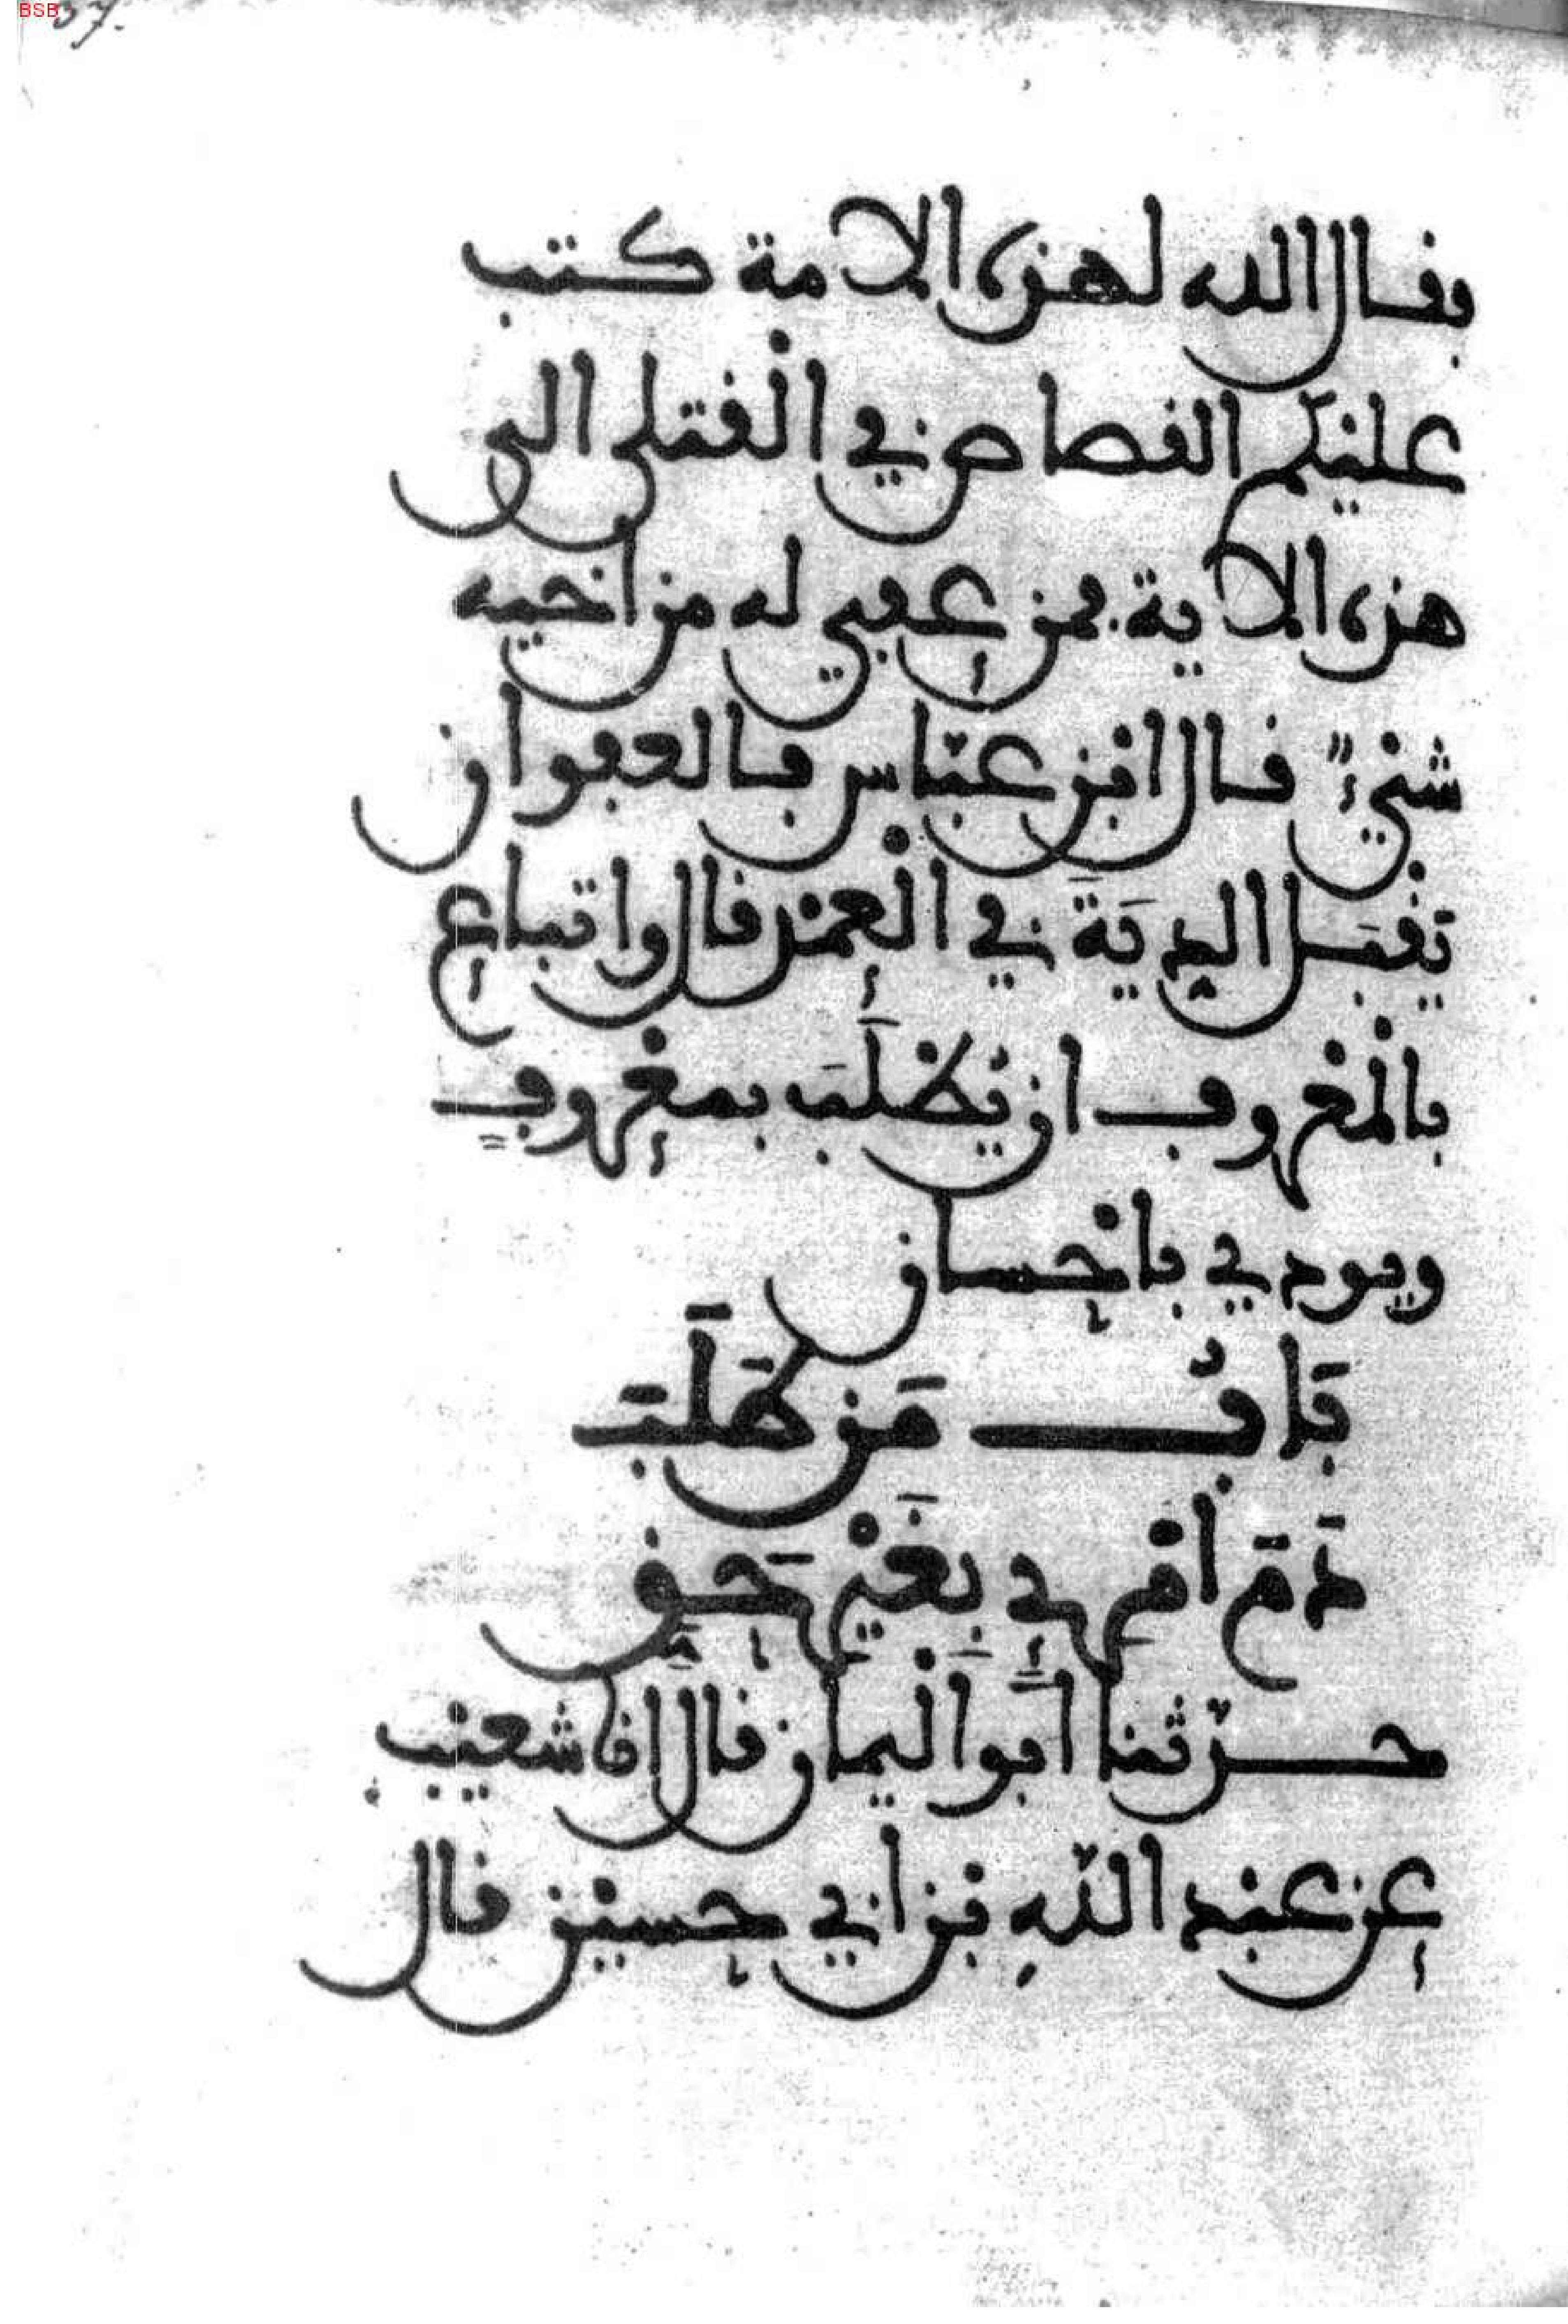 BSB
37.
فقال الله لهذه الامة كتب
عليكم القصاص في القتلى الى
هذه الاية فمن عفي له من اخيه
شيء قال ابن عباس فالعفو ان
يَقْبَل الدِيَةَ في الْعمْد قال واتباع
بالْمعْروف ان يُطْلَبَ بمعْروفٍ
ويودي باحْسان
بَابُ مَن طَلَبَ
دَمَ امْرِيٍ بِغَيْرِ حَقٍّ
حدّثنا ابَو الْيمان قال انا شعيب
عن عبد اللّهِ بن ابي حسين قال